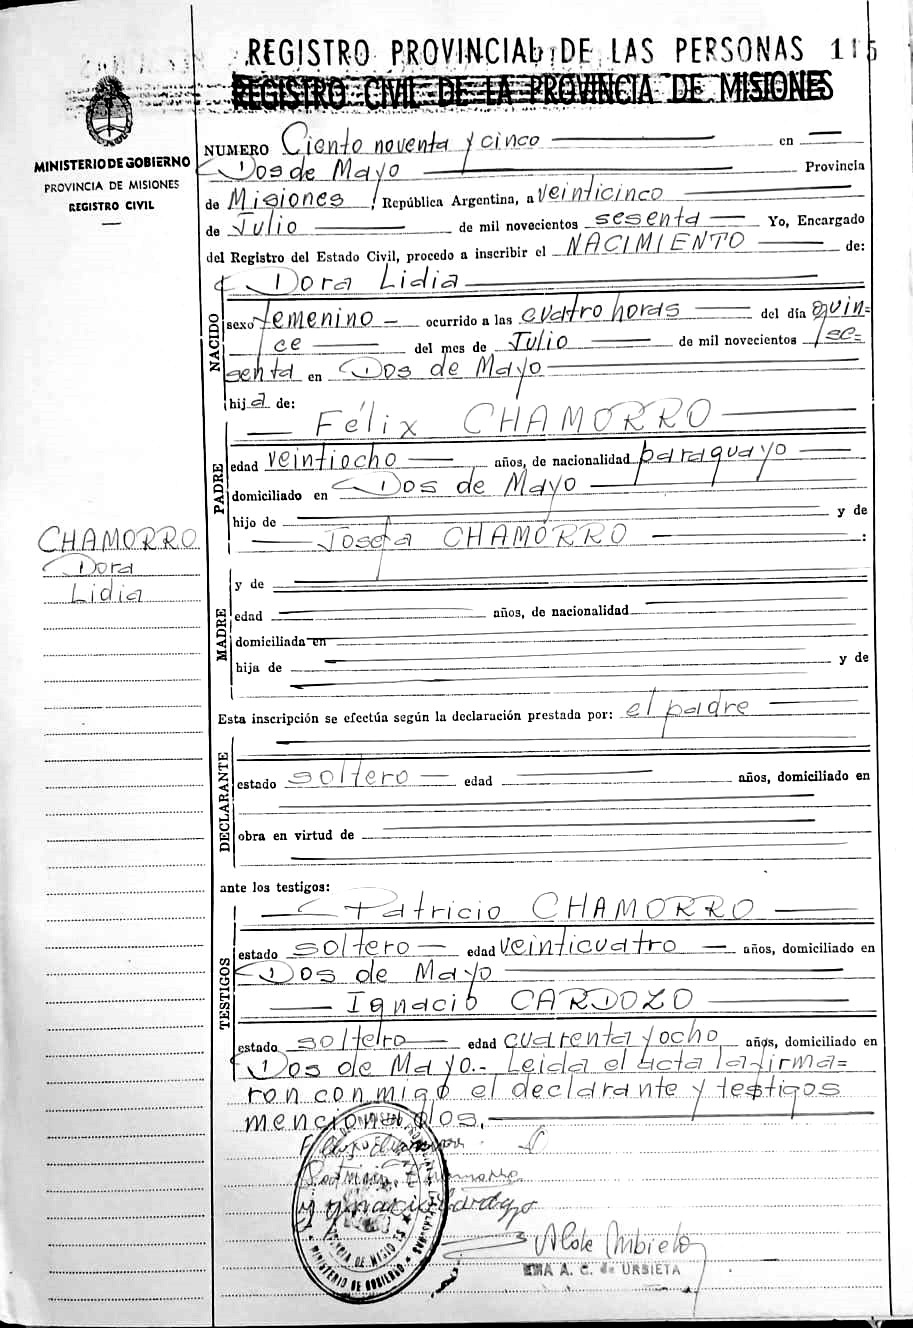 REGISTRO PROVINCIAL DE LAS PERSONAS 115
REGISTRO CIVIL DE LA PROVINCIA DE MISIONES
MINISTERIO DE GOBIERNO
PROVINCIA DE MISIONES
REGISTRO CIVIL
NUMERO Ciento noventa y cinco en
Dos de Mayo Provincia
de Misiones, República Argentina, a veinticinco
de Julio de mil novecientos sesenta Yo, Encargado
del Registro del Estado Civil, procedo a inscribir el NACIMIENTO de:
Dora Lidia
NACIDO
sexo femenino ocurrido a las cuatro horas del día quin=
ce del mes de Julio de mil novecientos se=
senta en Dos de Mayo
hija de:
Félix CHAMORRO
PADRE
edad veintiocho años, de nacionalidad paraguayo
domiciliado en Dos de Mayo
hijo de y de
Josefa CHAMORRO :
CHAMORRO
Dora
Lidia
MADRE
y de
edad años, de nacionalidad
domiciliada en
hija de y de
Esta inscripción se efectúa según la declaración prestada por: el padre
DECLARANTE
estado soltero edad años, domiciliado en
obra en virtud de
ante los testigos:
Patricio CHAMORRO
TESTIGOS
estado soltero edad veinticuatro años, domiciliado en
Dos de Mayo
Ignacio CARDOZO
estado soltero edad cuarenta y ocho años, domiciliado en
Dos de Mayo.- Leida el acta la firma=
ron conmigo el declarante y testigos
mencionados.
Ignacio Cardozo
EMA A. C. de URBIETA
MINISTERIO DE GOBIERNO